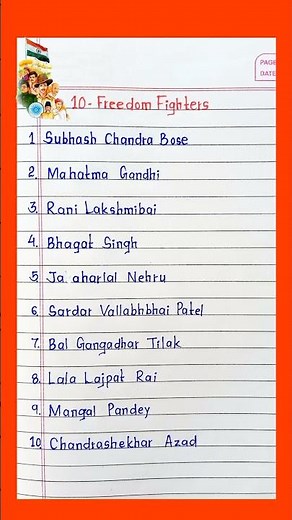 PAGE
DATE
10- Freedom Fighters
1. Subhash Chandra Bose
2. Mahatma Gandhi
3. Rani Lakshmibai
4. Bhagat Singh
5. Ja aharlal Nehru
6. Sardar Vallabhbhai Patel
7. Bal Gangadhar Tilak
8. Lala Lajpat Rai
9. Mangal Pandey
10. Chandrashekhar Azad